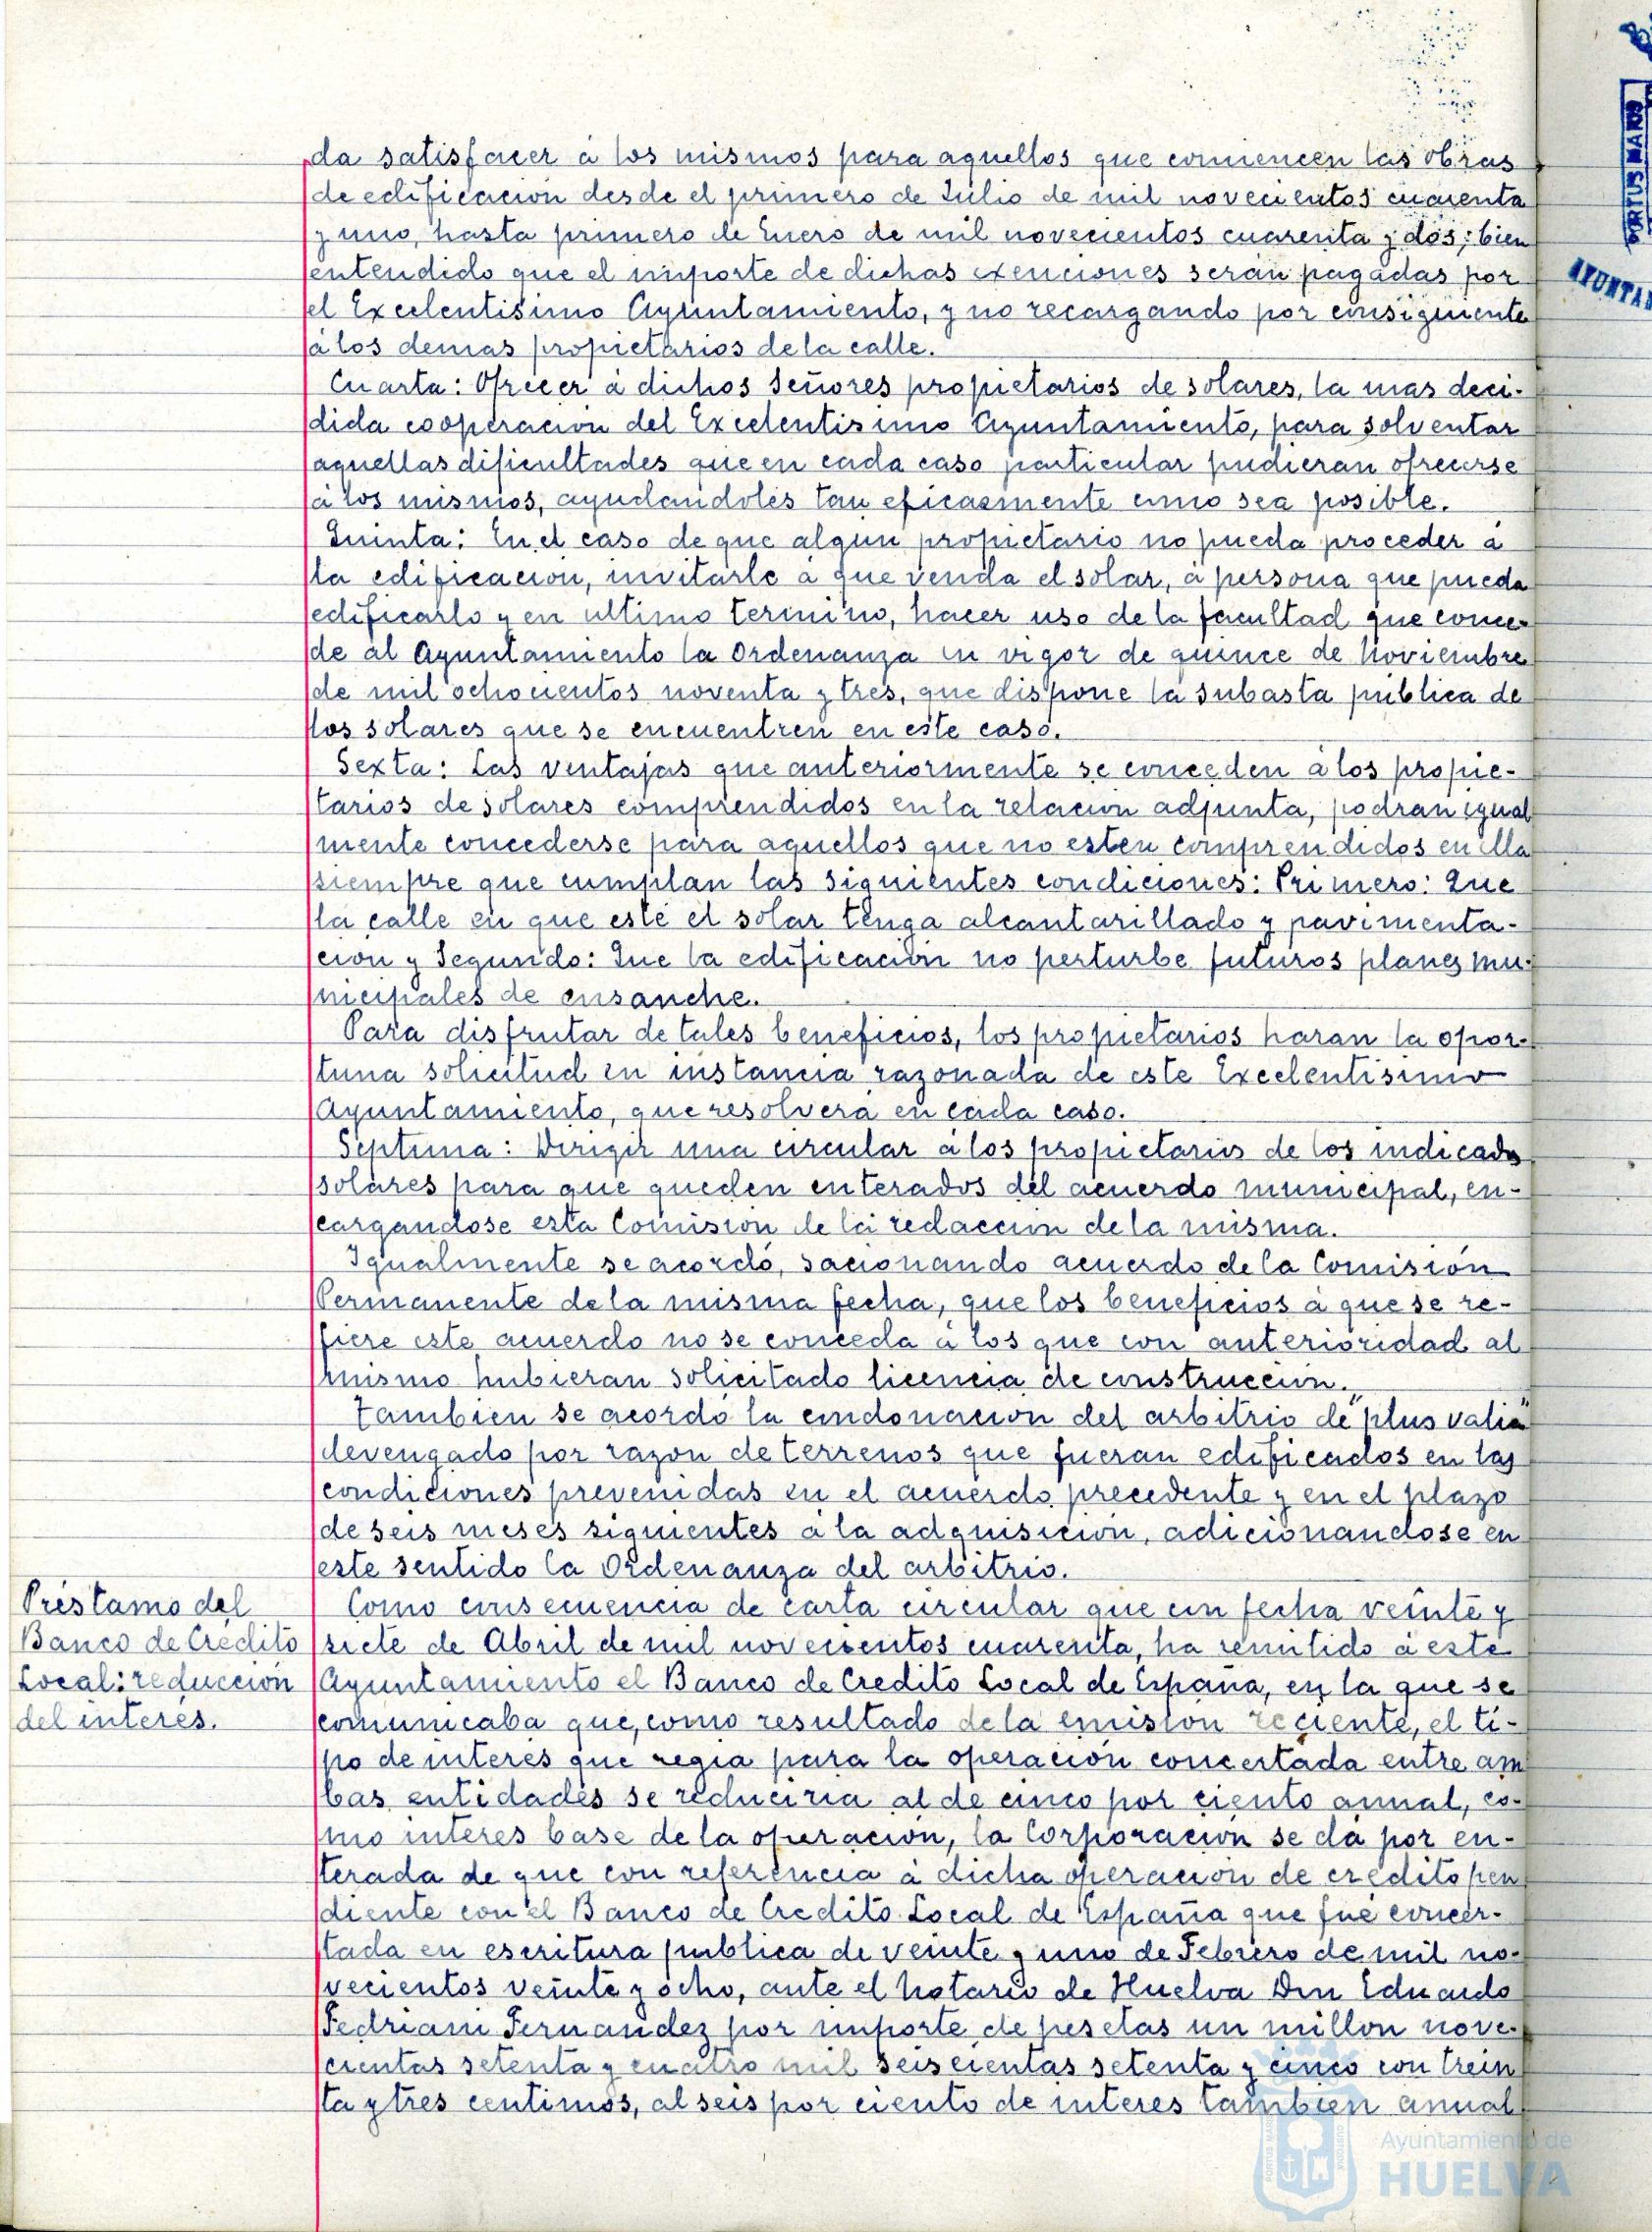 da satisfacer à los mismos para aquellos que comiencen las obras
de edificacion desde el primero de Julio de mil novecientos cuarenta
y uno, hasta primero de Enero de mil novecientos cuarenta y dos; bien
entendido que el importe de dichas exenciones seràn pagadas por
el Excelentisimo Ayuntamiento, y no recargando por consiguiente
à los demas propietarios de la calle.
Cuarta: Ofrecer à dichos Señores propietarios de solares, la mas deci-
dida cooperacion del Excelentisimo Ayuntamiento, para solventar
aquellas dificultades que en cada caso particular pudieran ofrecerse
à los mismos, ayudandoles tan eficazmente como sea posible.
Quinta: En el caso de que algun propietario no pueda proceder à
la edificacion, invitarle à que venda el solar, à persona que pueda
edificarlo y en ultimo termino, hacer uso de la facultad que conce-
de al Ayuntamiento la Ordenanza en vigor de quince de Noviembre
de mil ochocientos noventa y tres, que dispone la subasta pública de
los solares que se encuentren en este caso.
Sexta: Las ventajas que anteriormente se conceden à los propie-
tarios de solares comprendidos en la relacion adjunta, podran igual
mente concederse para aquellos que no esten comprendidos en ella
siempre que cumplan las siguientes condiciones: Primero: Que
la calle en que esté el solar tenga alcantarillado y pavimenta-
cion y Segundo: Que la edificación no perturbe futuros planes mu-
nicipales de ensanche.
Para disfrutar de tales beneficios, los propietarios haran la opor-
tuna solicitud en instancia razonada de este Excelentisimo
Ayuntamiento, que resolverá en cada caso.
Septima: Dirigir una circular à los propietarios de los indicados
solares para que queden enterados del acuerdo municipal, en-
cargandose esta Comision de la redaccion de la misma.
Igualmente se acordó, sacionando acuerdo de la Comisión
Permanente de la misma fecha, que los beneficios à que se re-
fiere este acuerdo no se conceda à los que con anterioridad al
mismo hubieran solicitado licencia de construccion.
Tambien se acordó la condonacion del arbitrio de "plus valia"
devengado por razon de terrenos que fueran edificados en las
condiciones prevenidas en el acuerdo precedente y en el plazo
de seis meses siguientes à la adquisicion, adicionandose en
este sentido la Ordenanza del arbitrio.
Préstamo del
Banco de Crédito
Local: reducción
del interés.
Como consecuencia de carta circular que con fecha veinte y
siete de Abril de mil novecientos cuarenta, ha remitido à este
Ayuntamiento el Banco de Credito Local de España, en la que se
comunicaba que, como resultado de la emision reciente, el ti-
po de interés que regia para la operación concertada entre am
bas entidades se reduciria al de cinco por ciento anual, co-
mo interes base de la operación, la Corporacion se dà por en-
terada de que con referencia à dicha operacion de crédito pen
diente con el Banco de Credito Local de España que fué concer-
tada en escritura publica de veinte y uno de Febrero de mil no-
vecientos veinte y ocho, ante el Notario de Huelva Don Eduardo
Fedriani Fernandez por importe de pesetas un millon nove-
cientas setenta y cuatro mil seiscientas setenta y cinco con trein
ta y tres centimos, al seis por ciento de interes tambien anual
PORTUS MARIS
AYUNTA
Ayuntamiento de
HUELVA